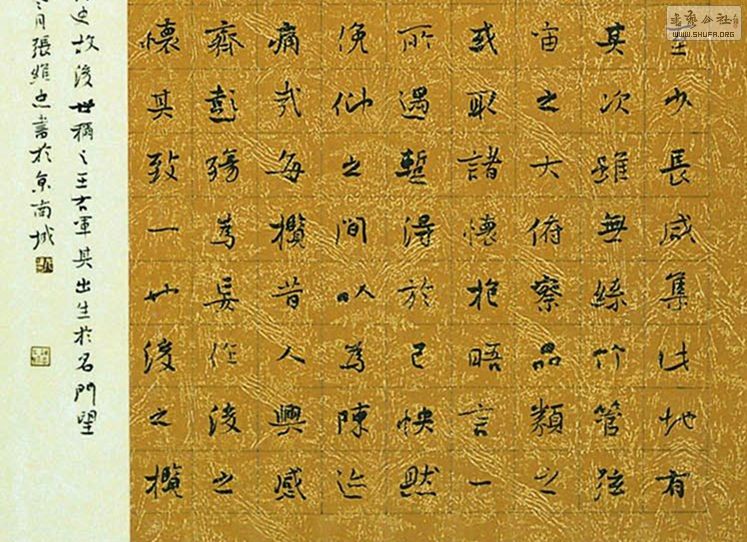 書藝公社
WWW.SHUFA.ORG
至少長咸集此地有
其次雖無絲竹管弦
宙之大俯察品類之
或取諸懷抱晤言一
所遇暫得於己怏然
俛仰之間以為陳迹
痛哉每攬昔人興感
齊彭殤為妄作後之
懷其致一也後之攬
史故後世稱之王右軍其出生於名門望
月張維書於京南城